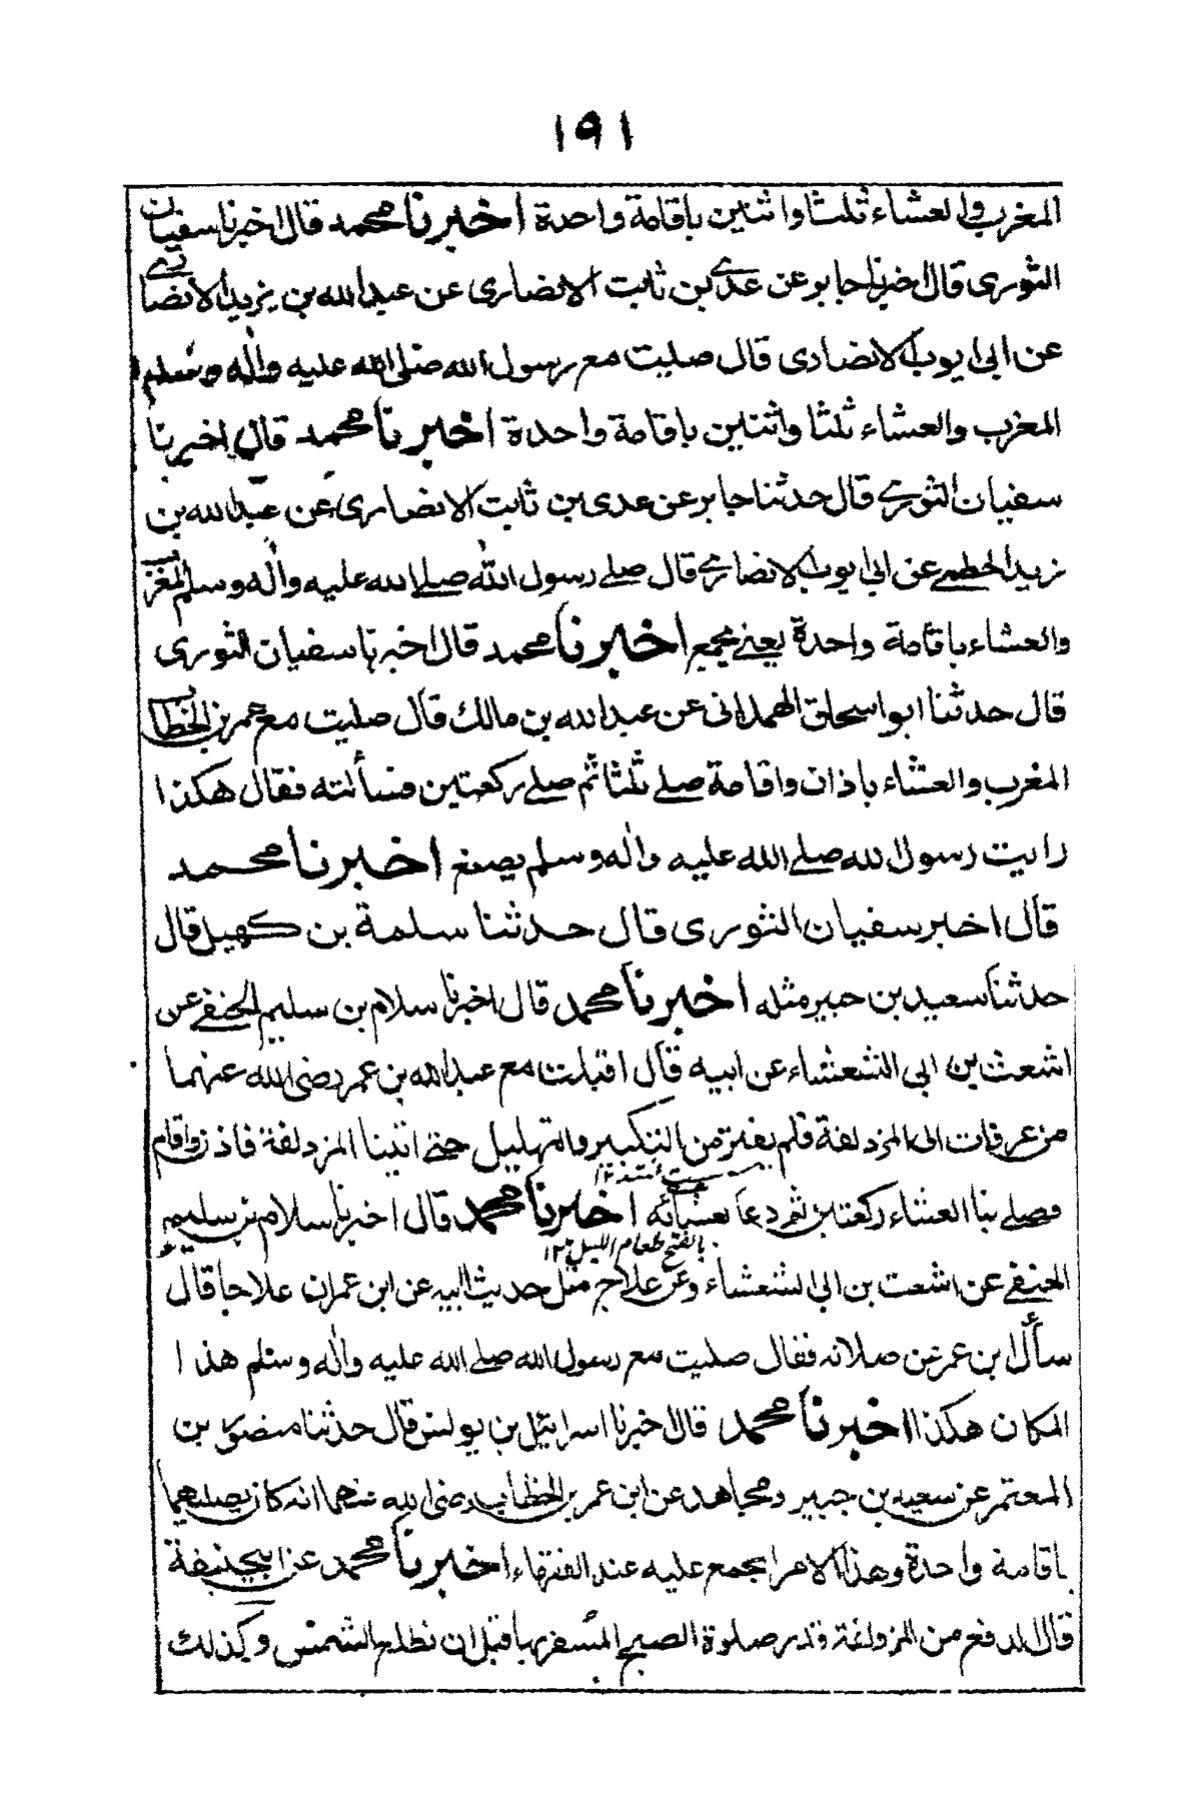 ١٩١
المغرب والعشاء ثلثا واثنتين باقامة واحدة اخبرنا محمد قال اخبرنا سفيان
الثوري قال اخبرنا جابر عن عدي بن ثابت الانصاري عن عبد الله بن يزيد الانصاري
عن ابي ايوب الانصاري قال صليت مع رسول الله صلى الله عليه واله وسلم
المغرب والعشاء ثلثا واثنتين باقامة واحدة اخبرنا محمد قال اخبرنا
سفيان الثوري قال حدثنا جابر عن عدي بن ثابت الانصاري عن عبد الله بن
يزيد الخطمي عن ابي ايوب الانصاري قال صلے رسول الله صلے الله عليه واله وسلم المغرب
والعشاء باقامة واحدة يعني بجمع اخبرنا محمد قال اخبرنا سفيان الثوري
قال حدثنا ابو اسحاق الهمداني عن عبد الله بن مالك قال صليت مع عمر بن الخطاب
المغرب والعشاء باذان واقامة صلے ثلثا ثم صلے ركعتين فسألته فقال هكذا
رايت رسول الله صلے الله عليه واله وسلم يصنع اخبرنا محمد
قال اخبر سفيان الثوري قال حدثنا سلمة بن كهيل قال
حدثنا سعيد بن جبير مثله اخبرنا محمد قال اخبرنا سلام بن سليم الحنفي عن
اشعث بن ابي الشعشاء عن ابيه قال اقبلت مع عبد الله بن عمر رضى الله عنهما
من عرفات الى المزدلفة فلم يفتر من التكبير والتهليل حتے اتينا المزدلفة فاذن واقام
فصلے بنا العشاء ركعتين ثم دعا بعشائه اخبرنا محمد قال اخبرنا سلام بن سليم
بالفتح طعام الليل ١٢
الحنفي عن اشعث بن ابي الشعشاء وعن علاج مثل حديث ابيه عن ابن عمر ان علاجا قال
سأل ابن عمر عن صلاته فقال صليت مع رسول الله صلے الله عليه واله وسلم هذا
المكان هكذا اخبرنا محمد قال اخبرنا اسرائيل بن يونس قال حدثنا منصور بن
المعتمر عن سعيد بن جبير ومجاهد عن ابن عمر بن الخطاب رضى الله عنهما انه كان يصليهما
باقامة واحدة وهذا الامر المجمع عليه عند الفقهاء اخبرنا محمد عن ابي حنيفة
قال الدفع من المزدلفة وقدر صلوة الصبح المسفر بها قبل ان تطلع الشمس وكذلك